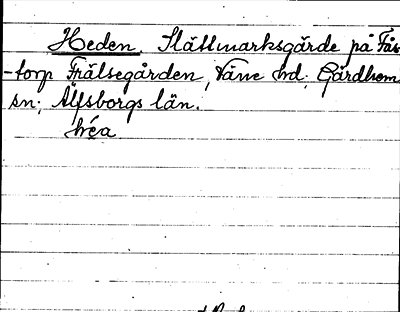 Heden, Slättmarksgärde på Fås-
-torp Frälsegården, Väne hd; Gärdhem
sn; Älfsborgs län.